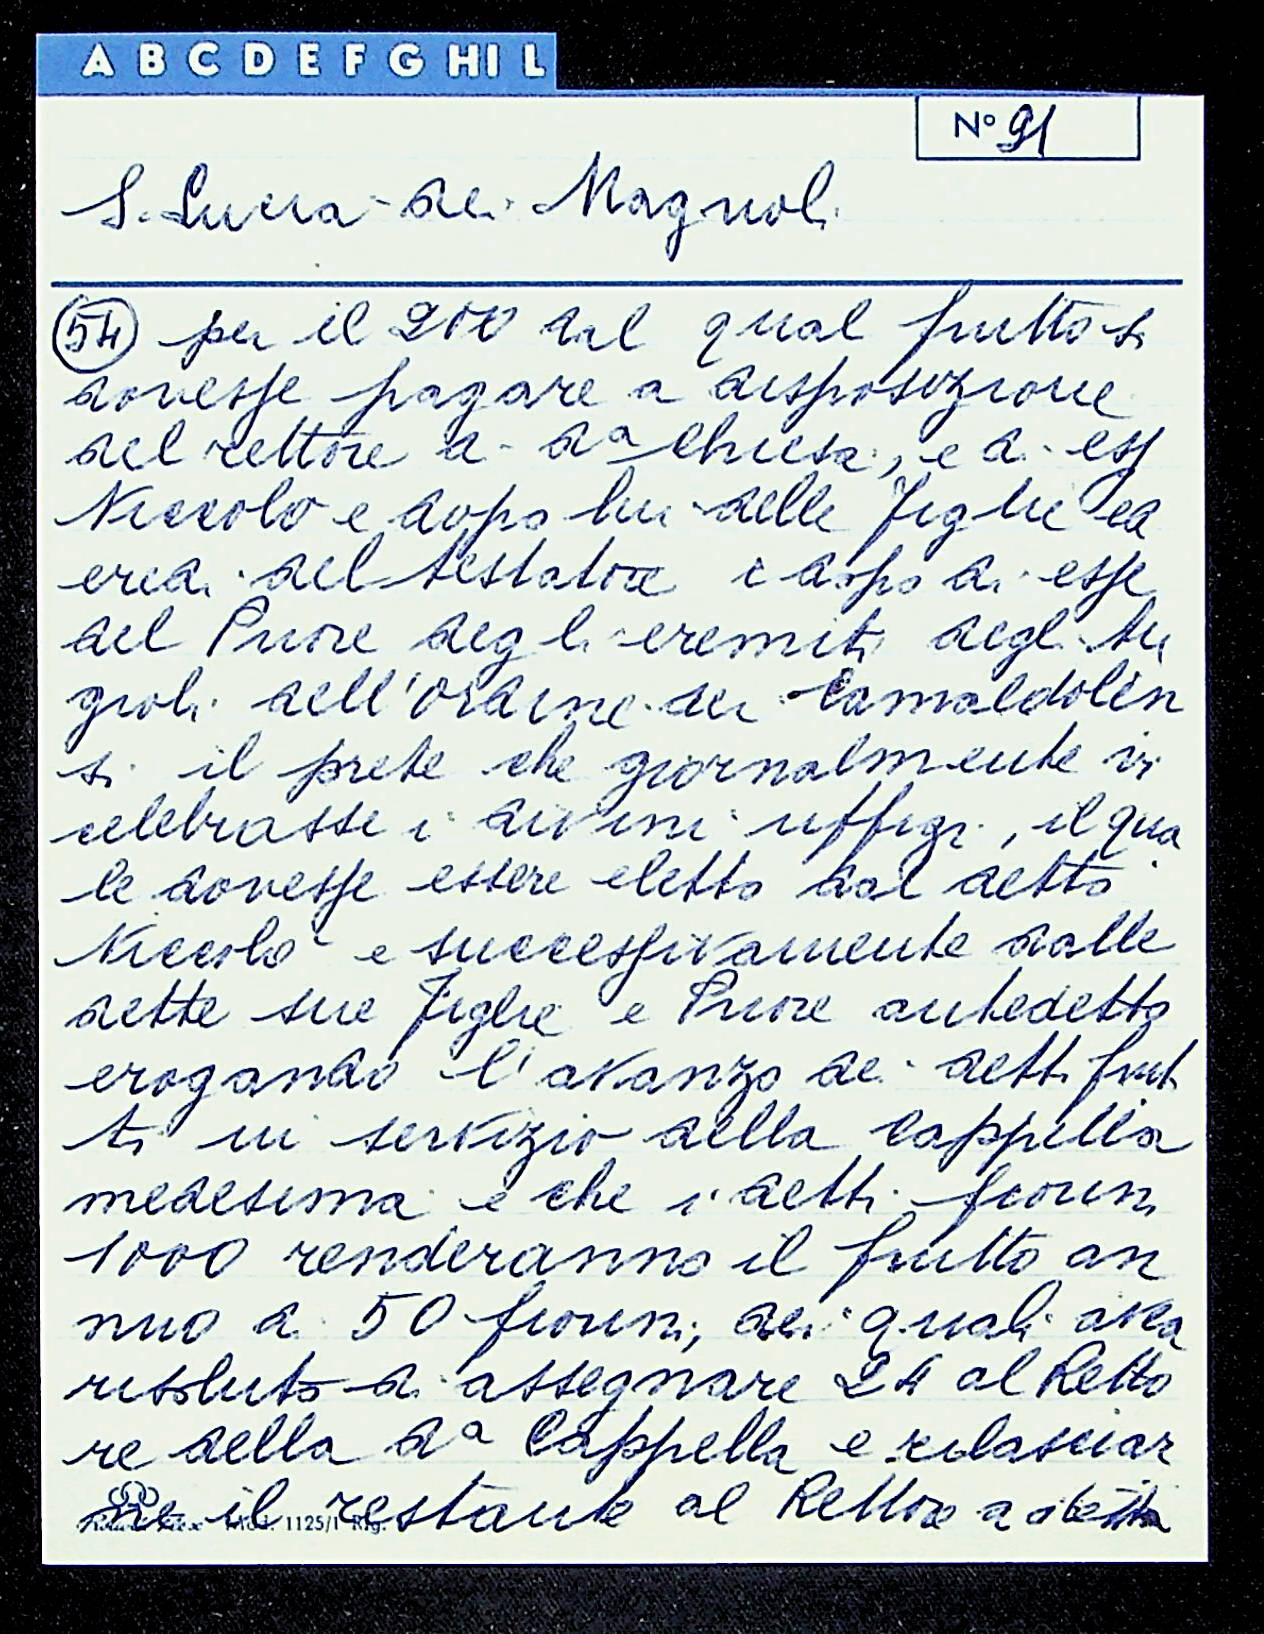 A B C D E F G HI L
N° 91
S. Lucia dei Magnoli
54 per il 200 tal qual frutto si
dovesse pagare a disposizione
del rettore di da Chiesa, e di es
Niccolò e dopo lui delle Figlie ed
eredi del testatore e dopo di esse
del Priore degli eremiti degli An
gioli dell'Ordine dei Camaldolen
si il prete che giornalmente vi
celebrasse i divini uffizi, il qua
le dovesse essere eletto dal detto
Niccolò e successivamente dalle
dette sue Figlie e Priore antedetto
erogando l'avanzo dei detti frut
ti in servizio della Cappella
medesima e che i detti fiorini
1000 renderanno il frutto an
nuo di 50 fiorini, dei quali avea
risoluto di assegnare 24 al Retto
re della da Cappella e rilasciar
ne il restante al Rettore di detta
Mod. 1125/1 Rig.